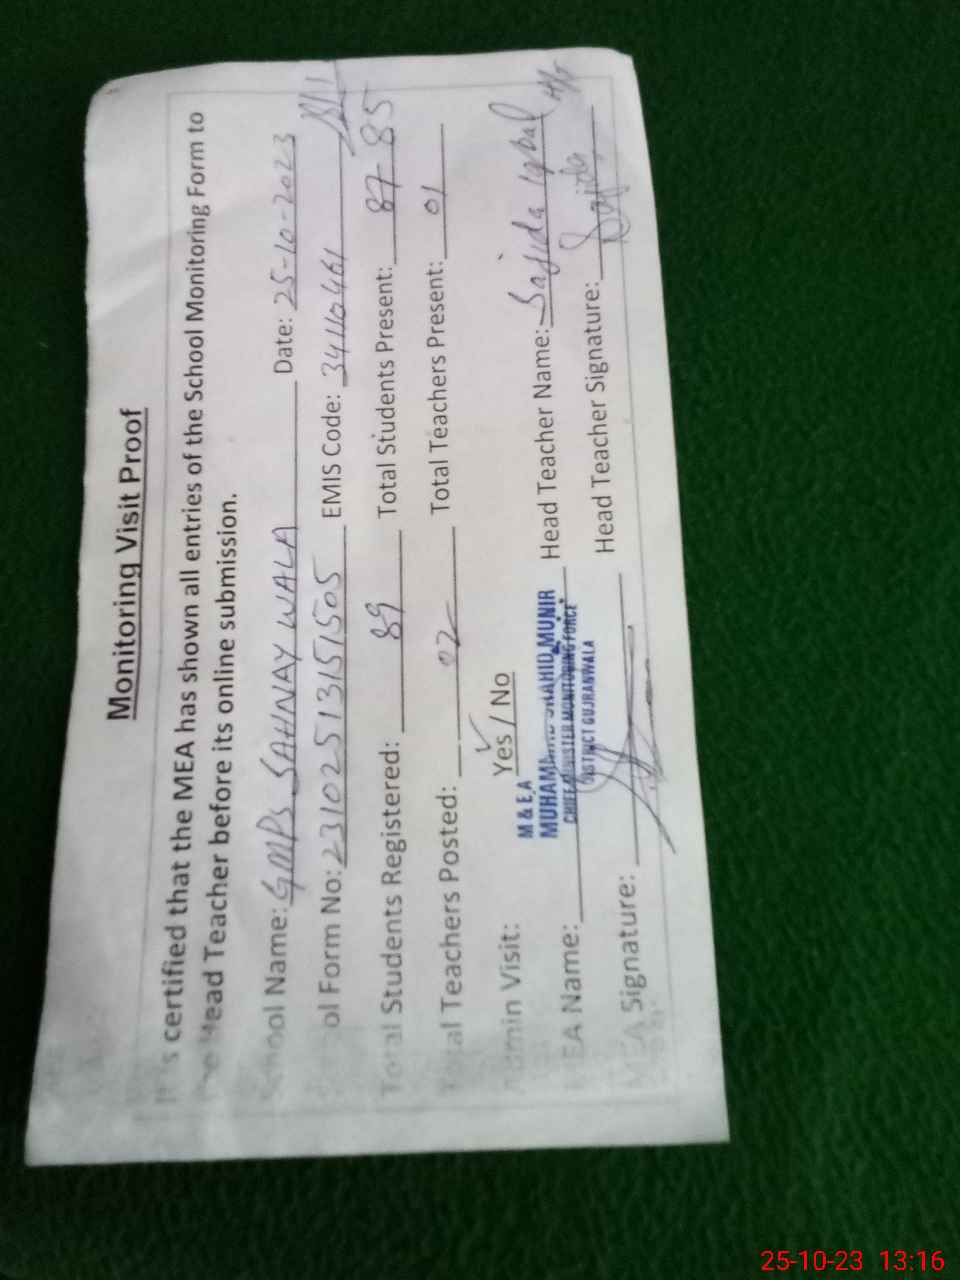 Monitoring Visit Proof
It is certified that the MEA has shown all entries of the School Monitoring Form to
the Head Teacher before its online submission.
School Name: GMPS SAHNAY WALA Date: 25-10-2023
School Form No: 231025131511505 EMIS Code: 34110461
Total Students Registered: 89 Total Students Present: 87 85
Total Teachers Posted: 02 Total Teachers Present: 01
Admin Visit: Yes / No
M & E A
MEA Name: MUHAMMAD SHAHID MUNIR Head Teacher Name: Sajida Iqbal
CHIEF MINISTER MONITORING FORCE
DISTRICT GUJRANWALA
MEA Signature: Head Teacher Signature: Sajida
25-10-23 13:16